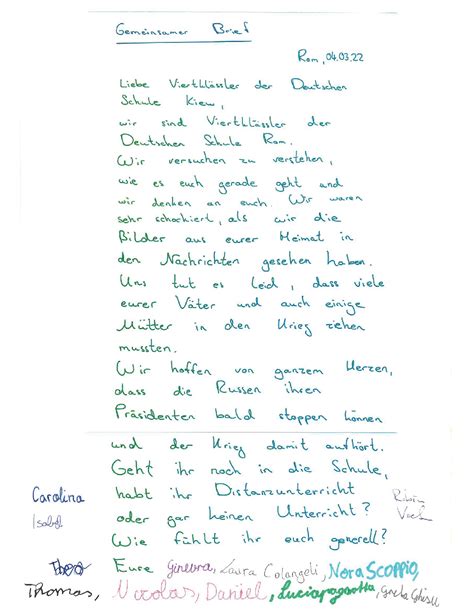 Gemeinsamer Brief
Rom, 04.03.22
Liebe Viertklässler der Deutschen
Schule Kiew,
wir sind Viertklässler der
Deutschen Schule Rom.
Wir versuchen zu verstehen,
wie es euch gerade geht und
wir denken an euch. Wir waren
sehr schockiert, als wir die
Bilder aus eurer Heimat in
den Nachrichten gesehen haben.
Uns tut es leid, dass viele
eurer Väter und auch einige
Mütter in den Krieg ziehen
mussten.
Wir hoffen von ganzem Herzen,
dass die Russen ihren
Präsidenten bald stoppen können
und der Krieg damit aufhört.
Geht ihr noch in die Schule,
Carolina habt ihr Distanzunterricht
oder gar keinen Unterricht?
Wie fühlt ihr euch generell?
Eure Ginevra, Laura Colangeli, Nora SCOPPIO,
Thomas, Nicolas, Daniel, Lucia